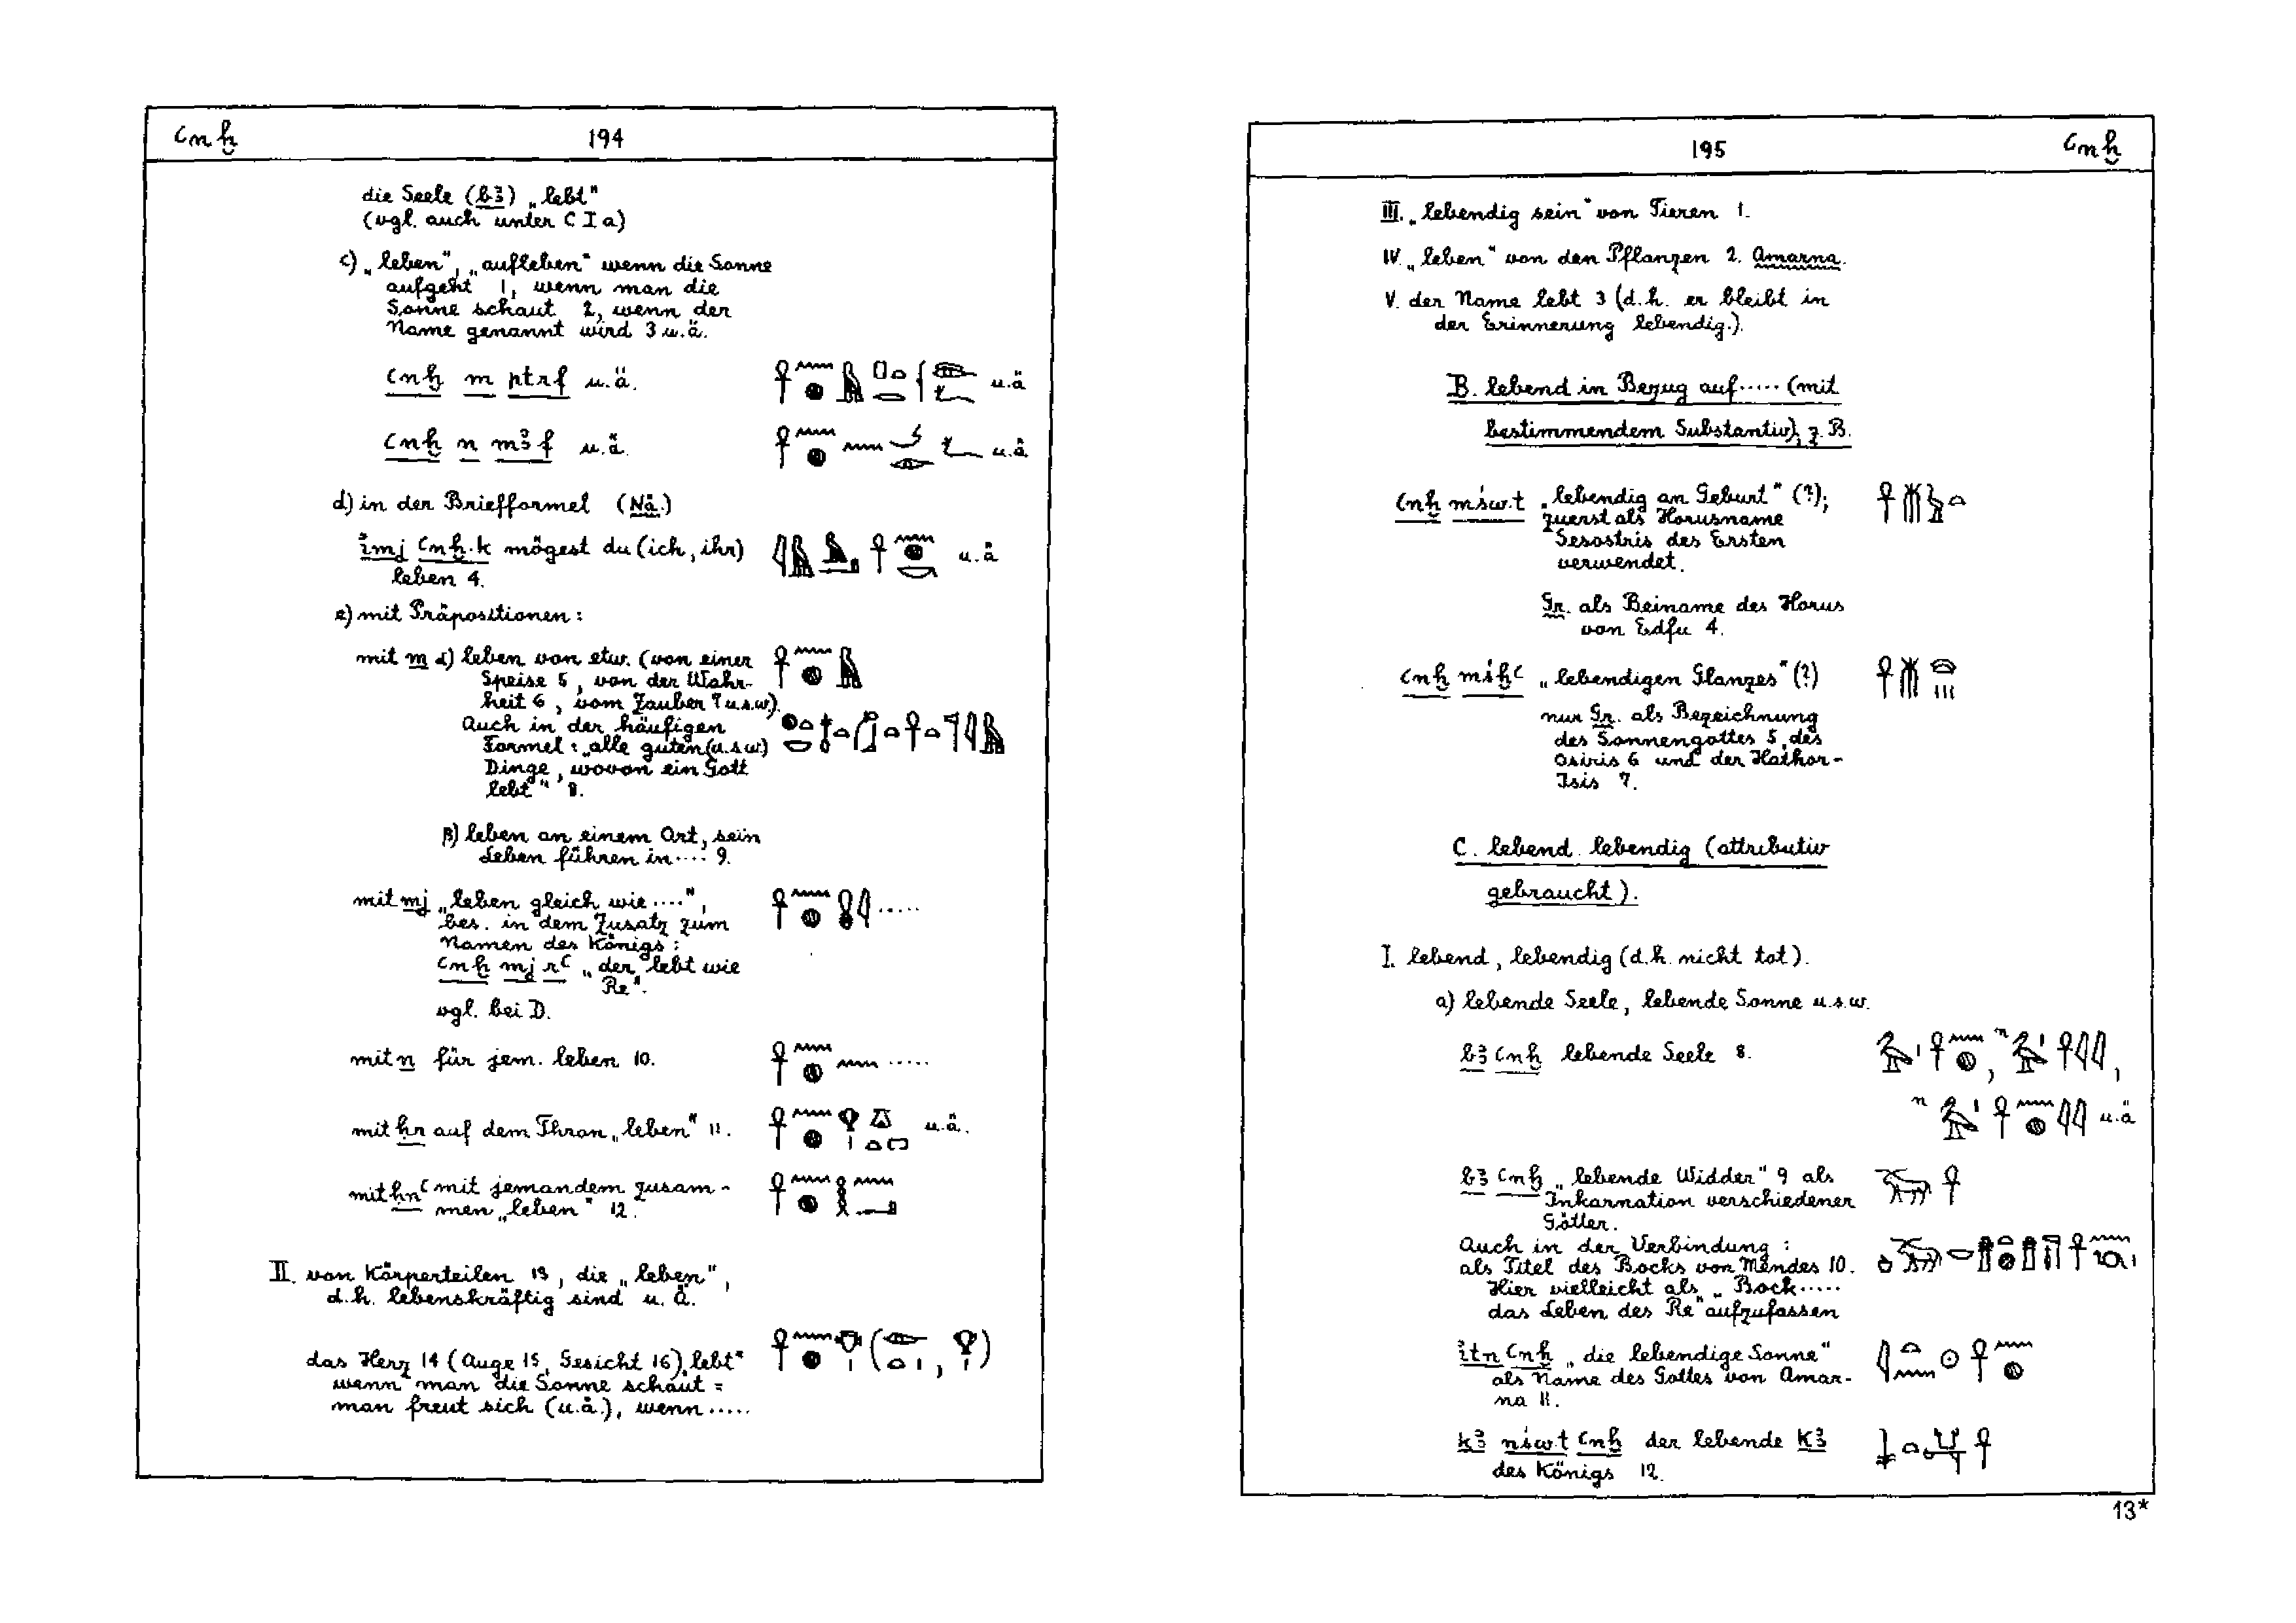 ꜥnḫ
194
die Seele (bꜣ) „lebt"
(vgl. auch unter C I a)
c) „leben", „aufleben" wenn die Sonne
aufgeht 1, wenn man die
Sonne schaut 2, wenn der
Name genannt wird 3 u.ä.
ꜥnḫ m ptrf u.ä. 𓋹𓈖𓐍𓅓 u.ä
ꜥnḫ n mꜣf u.ä. 𓋹𓈖𓐍𓈖 u.ä
d) in der Briefformel (Nä.)
ı͗mj ꜥnḫ.k mögest du (ich, ihr) 𓋹𓈖𓐍𓎡 u.ä
leben 4.
e) mit Präpositionen:
mit m α) leben von etw. (von einer 𓋹𓈖𓐍𓅓
Speise 5, von der Wahr-
heit 6, vom Zauber 7 u.s.w.).
Auch in der häufigen
Formel: „alle guten (u.s.w.)
Dinge, wovon ein Gott
lebt" 8.
β) leben an einem Ort, sein
Leben führen in .... 9.
mit mj „leben gleich wie ....", 𓋹𓈖𓐍𓏇𓇋 .....
bes. in dem Zusatz zum
Namen des Königs:
ꜥnḫ mj rꜥ „der lebt wie
Re".
vgl. bei D.
mit n für jem. leben 10. 𓋹𓈖𓐍𓈖 .....
mit ḥr auf dem Thron „leben" 11. 𓋹𓈖𓐍𓁷𓏤 u.ä.
mit ḥnꜥ mit jemandem zusam- 𓋹𓈖𓐍𓎛𓈖𓂝
men „leben" 12.
II. von Körperteilen 13, die „leben",
d.h. lebenskräftig sind u. ä.
das Herz 14 (Auge 15, Gesicht 16) „lebt" 𓋹𓈖𓐍𓄣𓏤(𓁹𓏏𓏤, 𓁷𓏤)
wenn man die Sonne schaut =
man freut sich (u.ä.), wenn .....
195
ꜥnḫ
III. „lebendig sein" von Tieren 1.
IV. „leben" von den Pflanzen 2. Amarna.
V. der Name lebt 3 (d.h. er bleibt in
der Erinnerung lebendig.).
B. lebend in Bezug auf ..... (mit
bestimmendem Substantiv), z.B.
ꜥnḫ mśw.t „lebendig an Geburt" (?); 𓋹𓄟𓋴𓏏
zuerst als Horusname
Sesostris des Ersten
verwendet.
Gr. als Beiname des Horus
von Edfu 4.
ꜥnḫ mśḫꜥ „lebendigen Glanzes" (?) 𓋹𓄟𓋴𓈍𓏥
nur Gr. als Bezeichnung
des Sonnengottes 5, des
Osiris 6 und der Hathor-
Isis 7.
C. lebend lebendig (attributiv
gebraucht).
I. lebend, lebendig (d.h. nicht tot).
a) lebende Seele, lebende Sonne u.s.w.
bꜣ ꜥnḫ lebende Seele 8. 𓅡𓏤𓋹𓈖𓐍, ⁿ𓅡𓏤𓋹𓇋𓇋,
ⁿ𓅡𓏤𓋹𓈖𓐍𓇋𓇋 u.ä
bꜣ ꜥnḫ „lebende Widder" 9 als 𓃝𓋹
Inkarnation verschiedener
Götter.
Auch in der Verbindung:
als Titel des Bocks von Mendes 10.
Hier vielleicht als „Bock .....
das Leben des Re" aufzufassen
ı͗tn ꜥnḫ „die lebendige Sonne" 𓇋𓏏𓈖𓇳𓋹𓈖𓐍
als Name des Gottes von Amar-
na 11.
kꜣ nśw.t ꜥnḫ der lebende kꜣ 𓇓𓏏𓂓𓋹
des Königs 12.
13*